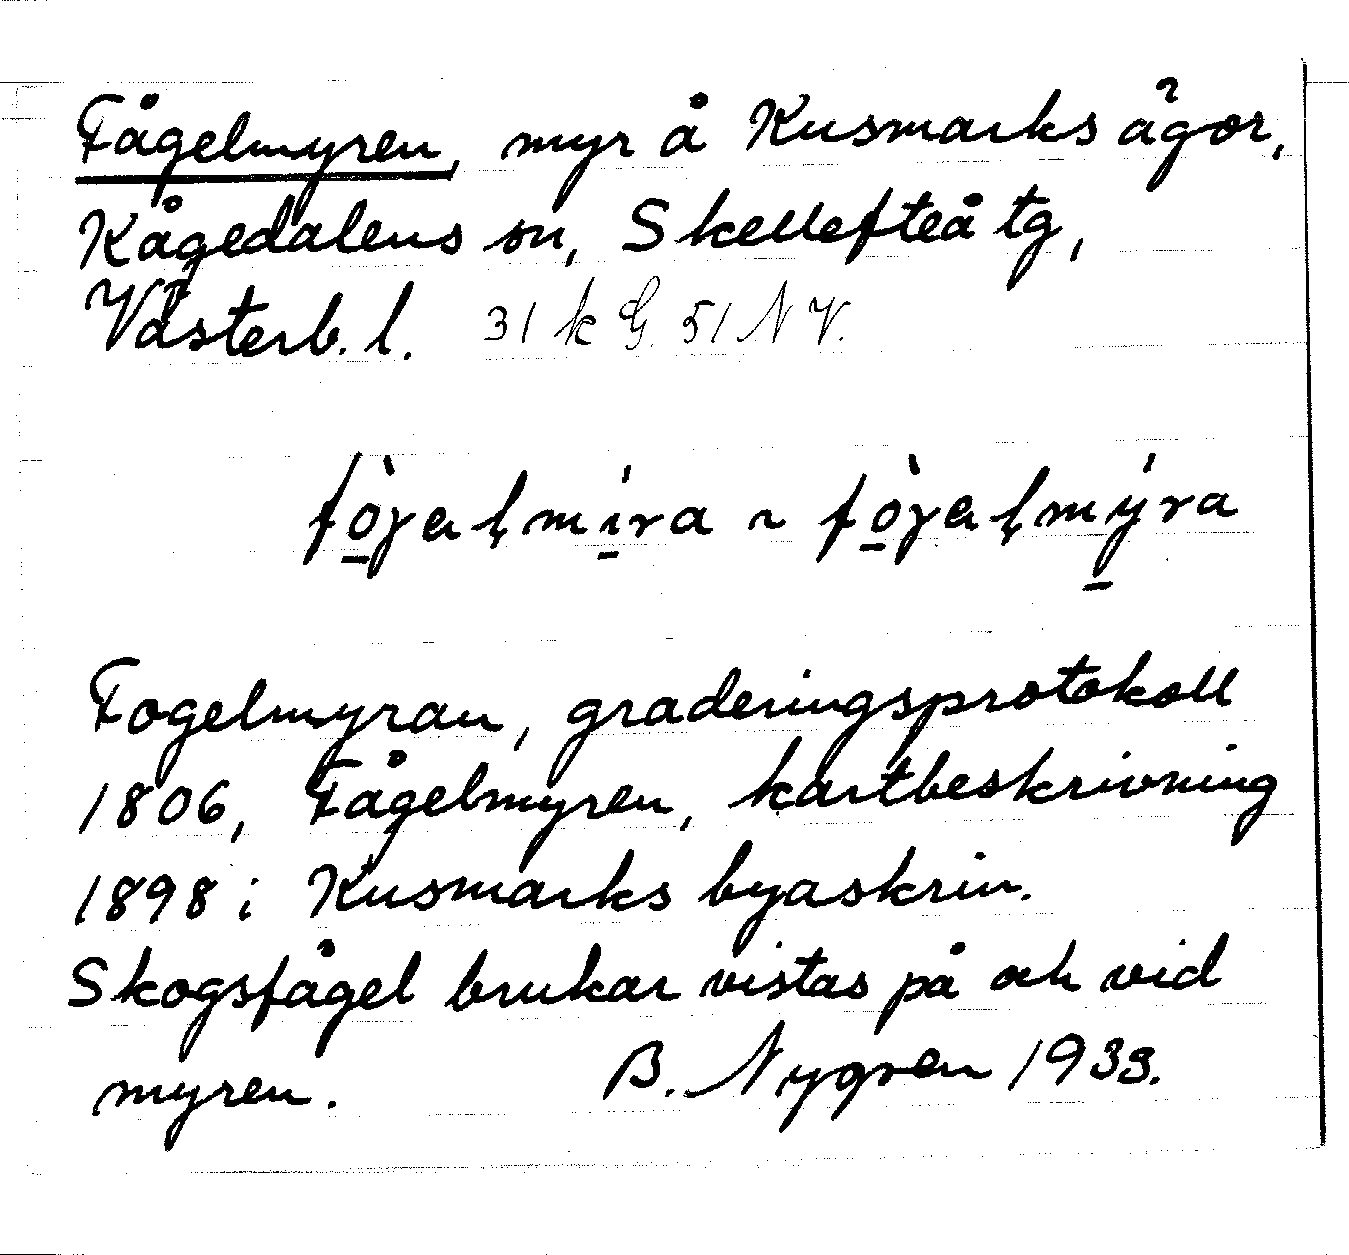 Fågelmyren, myr å Kusmarks ägor,
Kågedalens sn, Skellefteå tg,
Västerb. l. 31 k G. 51 N V.
fò̱γalmí̱ra ~ fò̱γalmý̱ra
Fogelmyran, graderingsprotokoll
1806, Fågelmyren, kartbeskrivning
1898 i Kusmarks byaskrin.
Skogsfågel brukar vistas på och vid
myren. B. Nygren 1933.